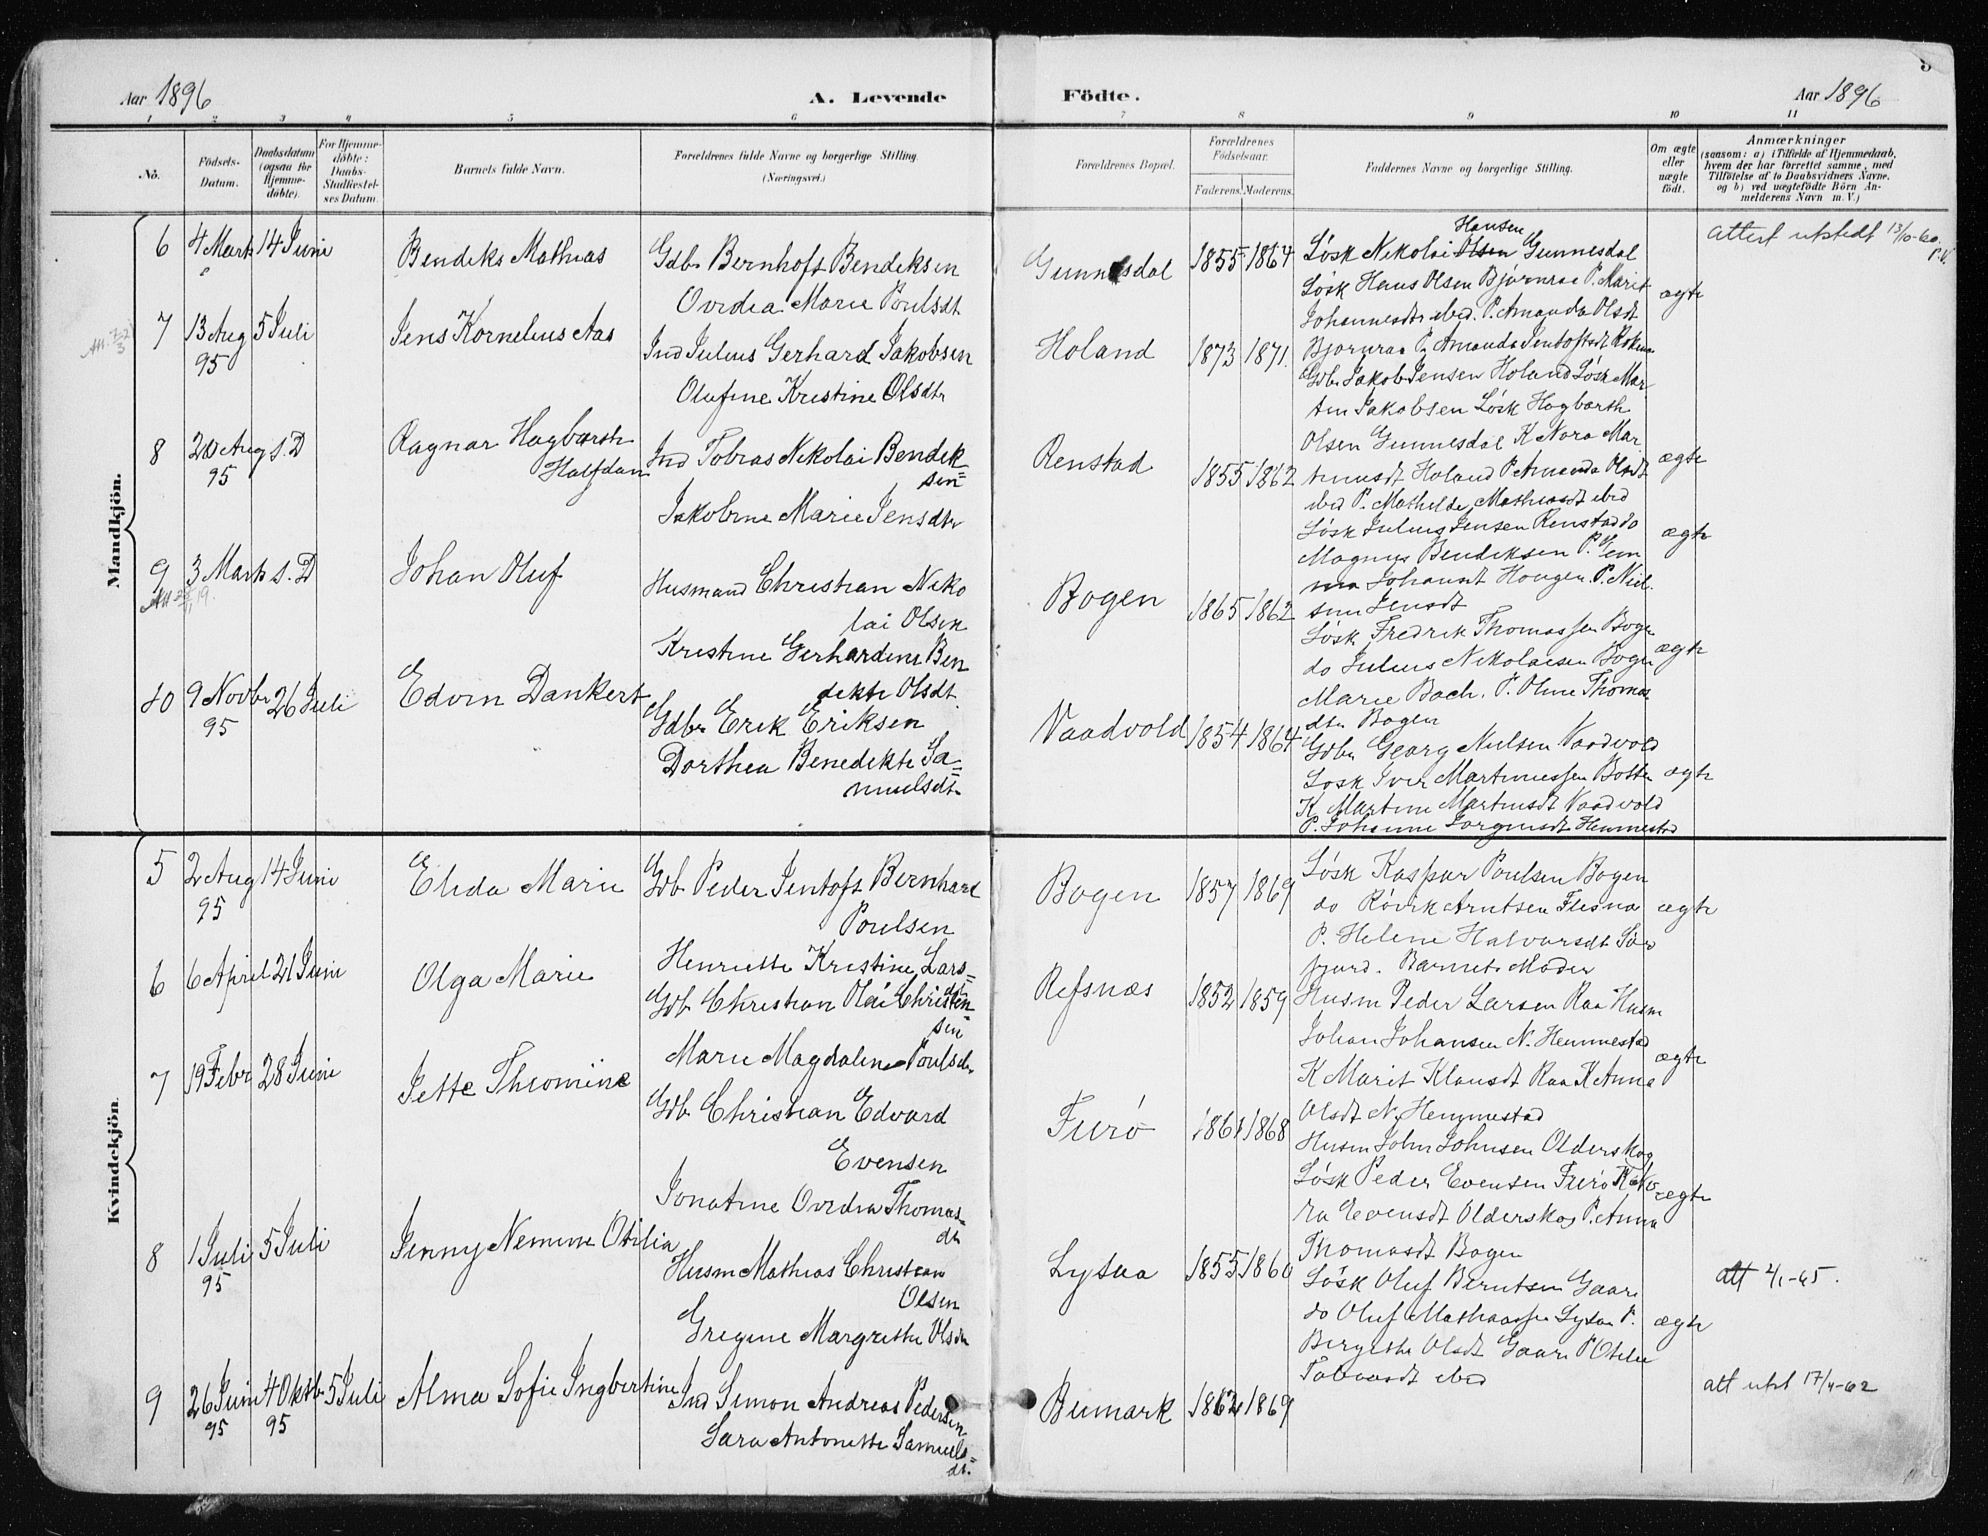 Aar 1896
A. Levende
Födte.
Aar 1896
1 2 3 4 5 6 7 8 9 10 11
No.
Födsels-Datum.
Daabsdatum (ogsaa för Hjemme-döbte).
For Hjemme-döbte: Daabs-Stadfæstel-ses Datum.
Barnets fulde Navn.
Forældrenes fulde Navne og borgerlige Stilling.
(Næringsvei.)
Forældrenes Bopæl.
Forældrenes Födselsaar.
Faderens. Moderens.
Faddernes Navne og borgerlige Stilling.
Om ægte eller uægte födt.
Anmærkninger
(saasom: a) i Tilfælde af Hjemmedaab,
hvem der har forrettet samme, med
Tilföielse af to Daabsvidners Navne.
og b) ved uægtefödte Börn An-
melderens Navn m. V.)
Mandkjön.
6 4 Marts 14 Juni Bendiks Mathias
Gdb. Bernhoft Bendiksen
Ovedia Marie Poulsdt
Gunnesdal 1855 1864
Hansen
Løsk Nikolai Olsen Gunnesdal
Løsk Hans Olsen Bjørnraa P. Marit
Johannesdtr ibid. P. Amanda Olsdt
ægte
attest utstedt 13/10-60.
P.V.
7 13 Aug 95 5 Juli Jens Kornelius Aas
Ind Julius Gerhard Jakobsen
Olufine Kristine Olsdtr
Holand 1873 1871.
Bjørnraa P. Amanda Jentoftsdt
Gdb. Jakob Jensen Holand Løsk Mar
tin Jakobsen Løsk Hagbarth
Olsen Gunnesdal K Nora Mar
tinusdt Holand P. Amanda Olsdt
ibid P. Mathilde Mathiasdt ibid
ægte
8 20 Aug 95 s. D Ragnar Hagbarth
Halfdan
Ind Tobias Nikolai Bendik-
sen
Jakobine Marie Jensdtr
Renstad 1855 1862
Løsk Julius Jensen Renstad do
Magnus Bendiksen P.
Johansdt Haugen P. Niel-
sine Jensdt
ægte
9 3 Marts s. D Johan Oluf
Husmand Christian Niko
lai Olsen
Kristine Gerhardine Ben
dikte Olsdt.
Bogen 1865 1862
Løsk Fredrik Thomassen Bogen
do Julius Nikolaisen Bogen
Marie Bach. P. Oline Thomas
dtr Bogen
ægte
10 9 Novbr 95 26 Juli Edvin Dankert
Gdbr Erik Eriksen
Dorthea Benedikte Sa-
muelsdt.
Vaadvold 1854 1864
Gdbr Georg Nielsen Vaadvold
Løsk Iver Martinussen Botten
K Martine Martinsdt Vaadvold
P. Johanne Jørgensdt Hemmestad
ægte
Kvindekjön.
5 2 Aug 95 14 Juni Elida Marie
Gdb. Peder Jentoft Bernhard
Poulsen
Henriette Kristine Lars-
dt
Bogen 1857 1869
Løsk Kaspar Poulsen Bogen
do Rørik Arntsen Flesnæ
P. Helene Halvorsdt Sør
fjord. Barnets Moder
ægte
6 6 April 21 Juni Olga Marie
Gdb Christian Olai Christen-
sen
Marie Magdalene Poulsdtr
Refsnæs 1852 1859
Husm Peder Larsen Raa Husm
Johan Johansen N. Hemmestad
K Marit Klausdt Raa K Anna
Olsdt N. Hemmestad
ægte
7 19 Febr 28 Juni Jette Thomine
Gdb. Christian Edvard
Evensen
Jonatine Ovedia Thomas-
dtr
Furø 1861 1868
Husm John Johnsen Olderskog
Løsk Peder Evensen Furø K
Evensdt Olderskog P. Anna
Thomasdt Bogen
ægte
8 1 Juli 95 5 Juli Jenny Nemine Otilia
Husm Mathias Christian
Olsen
Gregine Margrethe Olsdtr
Lysaa 1855 1860
Løsk Oluf Berntsen Gaare
do Oluf Mathiassen Lysaa P.
Bergithe Olsdt Gaare P Otilie
Tobiasdt ibid
ægte
att 4/1-65.
9 26 Juni 95 4 Oktb. 95 5 Juli Alma Sofie Ingbertine
Ind Simon Andreas Pedersen
Sara Antonette Samuels-
dt.
Bumark 1862 1869
att utst 17/4-62